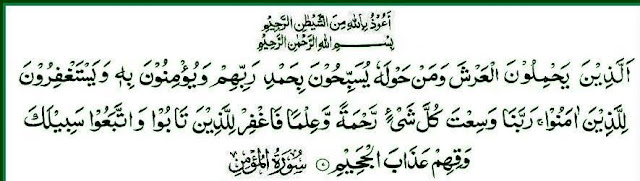 اَعُوْذُ بِاللّٰهِ مِنَ الشَّيْطٰنِ الرَّجِيْمِ
بِسْمِ اللّٰهِ الرَّحْمٰنِ الرَّحِيْمِ
اَلَّذِيْنَ يَحْمِلُوْنَ الْعَرْشَ وَمَنْ حَوْلَهٗ يُسَبِّحُوْنَ بِحَمْدِ رَبِّهِمْ وَيُؤْمِنُوْنَ بِهٖ وَيَسْتَغْفِرُوْنَ
لِلَّذِيْنَ اٰمَنُوْا ۚ رَبَّنَا وَسِعْتَ كُلَّ شَيْءٍ رَّحْمَةً وَّعِلْمًا فَاغْفِرْ لِلَّذِيْنَ تَابُوْا وَاتَّبَعُوْا سَبِيْلَكَ
وَقِهِمْ عَذَابَ الْجَحِيْمِ ۝۷ سُوْرَةُ الْمُؤْمِنْ